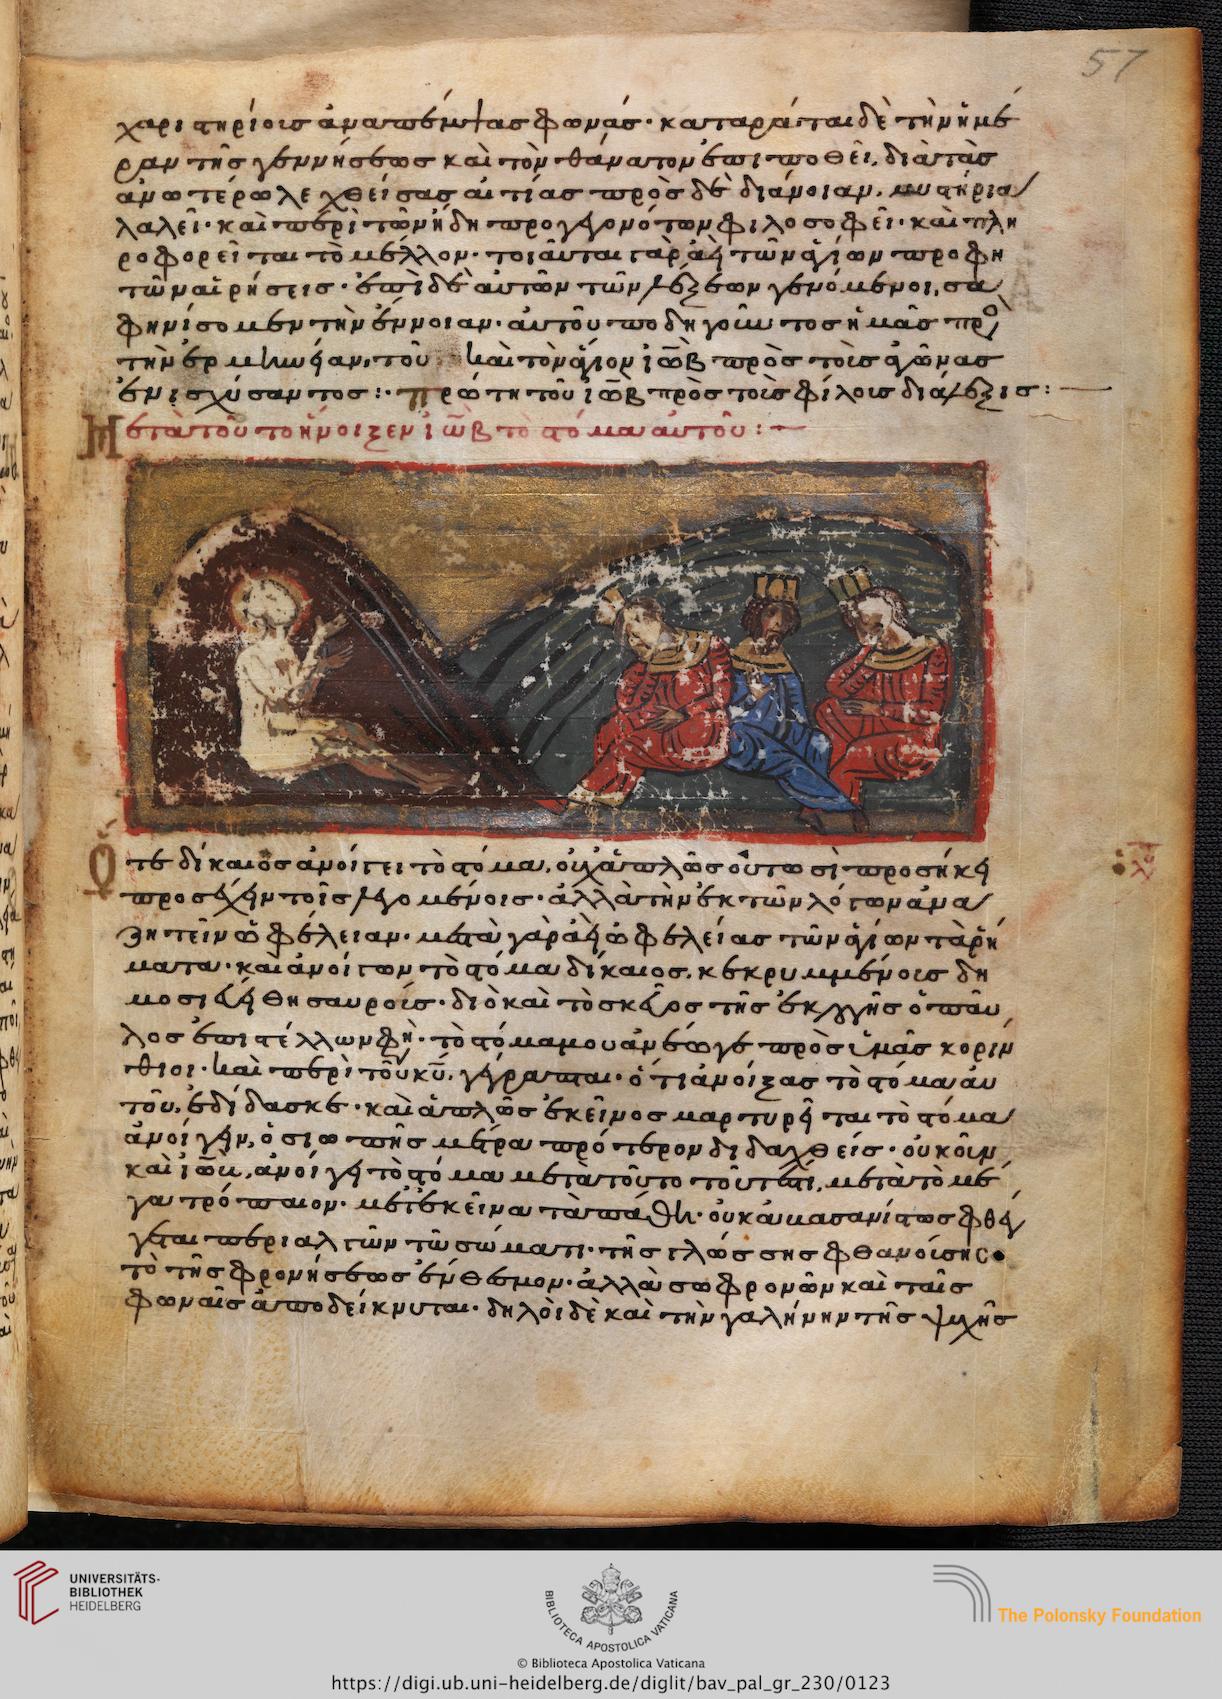 57
χαριστηρίοις ἀναπέμψας φωνάς· καταράται δὲ τὴν ἡμέ
ραν τῆς γεννήσεως καὶ τὸν θάνατον ἐπιποθεῖ, διὰ τὰς
ἀνωτέρω λεχθείσας αἰτίας πρὸς δὲ διάνοιαν, μυστήρια
λαλεῖ· καὶ περὶ τῶν ἤδη προγεγονότων φιλοσοφεῖ· καὶ πλη
ροφορεῖται τὸ μέλλον· τοιαῦται γὰρ ἀεὶ τῶν ἁγίων προφη
τῶν αἱ ῥήσεις· ἐπὶ δὲ αὐτῶν τῶν λέξεων γενόμενοι, σα
φηνίσομεν τὴν ἔννοιαν· αὐτοῦ ποδηγοῦντος ἡμᾶς πρὸς
τὴν ἑρμηνείαν, τοῦ καὶ τὸν ἅγιον ἰὼβ πρὸς τοὺς ἀγῶνας
ἐνισχύσαντος:· πρώτη τοῦ ἰὼβ πρὸς τοῖς φίλοις διάλεξις:
Μετὰ τοῦτο ἤνοιξεν ἰὼβ τὸ στόμα αὐτοῦ:
Ὅτε δίκαιος ἀνοίγει τὸ στόμα, οὐχ ἁπλῶς οὕτωσὶ προσήκει
προσέχειν τοῖς λεγομένοις· ἀλλὰ τὴν ἐκ τῶν λόγων ἀνα
ζητεῖν ὠφέλειαν· μετὰ γὰρ ἀεὶ ὠφελείας τῶν ἁγίων τὰ ῥή
ματα· καὶ ἀνοίγων τὸ στόμα δίκαιος, κεκρυμμένοις δη
μοσιεύει θησαυροῖς· διὸ καὶ τὸ σκεῦος τῆς ἐκλογῆς ὁ παῦ
λος ἐπιστέλλων φησὶ· τὸ στόμα μου ἀνέῳγε πρὸς ὑμᾶς κορίν
θιοι· καὶ περὶ τοῦ κυ, γέγραπται· ὅτι ἀνοίξας τὸ στόμα αὐ
τοῦ, ἐδίδασκε· καὶ ἁπλῶς ἐκεῖνος μαρτυρεῖται τὸ στόμα
ἀνοίγειν, ὁ σιωπῆς μέτρα πρότερον διδαχθείς· οὐκοῦν
καὶ ἰὼβ, ἀνοίγει τὸ στόμα μετὰ τοῦτο τοῦτέστι, μετὰ τὸ μέ
γα τρόπαιον· μετ' ἐκεῖνα τὰ πάθη· οὐκ ἀκατανίστως φθέγ
γεται περιαλγῶν τῷ σώματι· τῆς γλώσσης φθανοίσης
τὸ τῆς φρονήσεως ἔνθεσμον· ἀλλὰ σωφρονῶν καὶ ταῖς
φωναῖς ἀποδείκνυται· δηλοῖ δὲ καὶ τὴν γαλήνην τῆς ψυχῆς
UNIVERSITÄTS-
BIBLIOTHEK
HEIDELBERG
BIBLIOTECA APOSTOLICA VATICANA
The Polonsky Foundation
© Biblioteca Apostolica Vaticana
https://digi.ub.uni-heidelberg.de/diglit/bav_pal_gr_230/0123